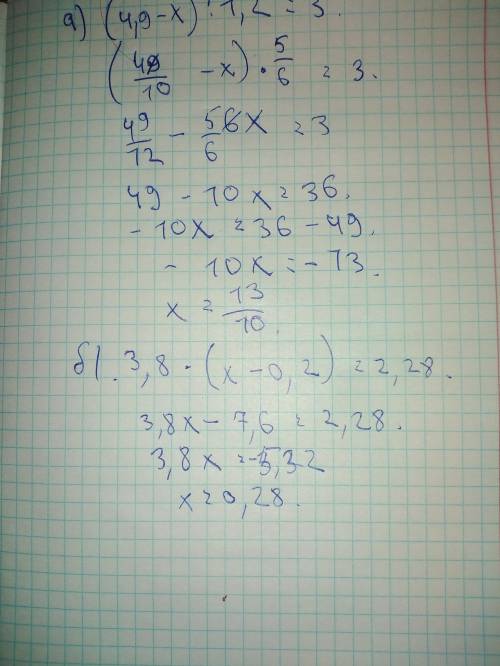 а) (4,9-x) : 1,2 = 3.
(49/10 - x) · 5/6 = 3.
49/12 - 5/6 x = 3
49 - 10x = 36.
- 10x = 36 - 49.
- 10x = - 13.
x = 13/10.
б). 3,8 · (x - 0,2) = 2,28.
3,8x - 7,6 = 2,28.
3,8x = -5,32
x = 0,28.